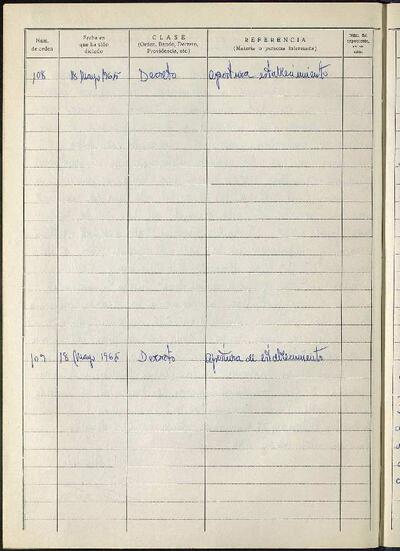 Núm. de orden
Fecha en que ha sido dictado
CLASE
(Orden, Bando, Decreto, Providencia, etc)
REFERENCIA
(Materia o persona interesada)
108 18 Mayo 1965 Decreto apertura establecimiento
109 18 Mayo 1965 Decreto apertura de establecimiento